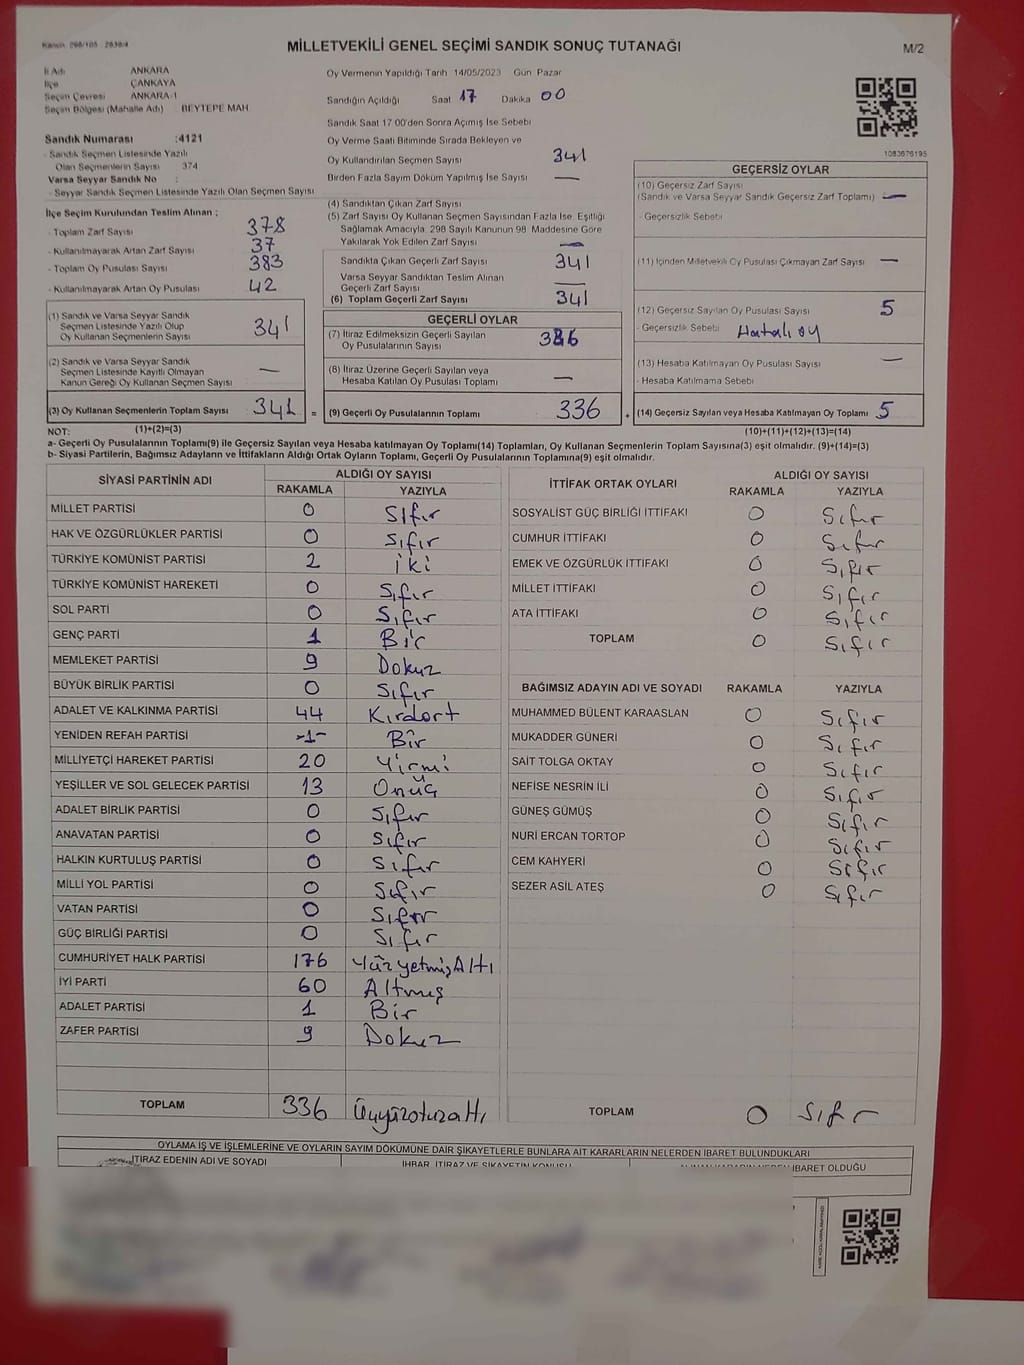 Kanun: 298/105 - 2839/4
MİLLETVEKİLİ GENEL SEÇİMİ SANDIK SONUÇ TUTANAĞI
M/2
İl Adı ANKARA
İlçe ÇANKAYA
Seçim Çevresi ANKARA-1
Seçim Bölgesi (Mahalle Adı) BEYTEPE MAH
Sandık Numarası :4121
- Sandık Seçmen Listesinde Yazılı
Olan Seçmenlerin Sayısı 374
Varsa Seyyar Sandık No :
- Seyyar Sandık Seçmen Listesinde Yazılı Olan Seçmen Sayısı
İlçe Seçim Kurulundan Teslim Alınan ;
- Toplam Zarf Sayısı 378
- Kullanılmayarak Artan Zarf Sayısı 37
- Toplam Oy Pusulası Sayısı 383
- Kullanılmayarak Artan Oy Pusulası 42
(1) Sandık ve Varsa Seyyar Sandık
Seçmen Listesinde Yazılı Olup
Oy Kullanan Seçmenlerin Sayısı 341
(2) Sandık ve Varsa Seyyar Sandık
Seçmen Listesinde Kayıtlı Olmayan
Kanun Gereği Oy Kullanan Seçmen Sayısı —
(3) Oy Kullanan Seçmenlerin Toplam Sayısı 341 =
Oy Vermenin Yapıldığı Tarih 14/05/2023 Gün Pazar
Sandığın Açıldığı Saat 17 Dakika 00
Sandık Saat 17.00'den Sonra Açımış İse Sebebi
Oy Verme Saati Bitiminde Sırada Bekleyen ve
Oy Kullandırılan Seçmen Sayısı 341
Birden Fazla Sayım Döküm Yapılmış İse Sayısı —
(4) Sandıktan Çıkan Zarf Sayısı
(5) Zarf Sayısı Oy Kullanan Seçmen Sayısından Fazla İse, Eşitliği
Sağlamak Amacıyla, 298 Sayılı Kanunun 98. Maddesine Göre
Yakılarak Yok Edilen Zarf Sayısı —
Sandıkta Çıkan Geçerli Zarf Sayısı 341
Varsa Seyyar Sandıktan Teslim Alınan
Geçerli Zarf Sayısı —
(6) Toplam Geçerli Zarf Sayısı 341
GEÇERLİ OYLAR
(7) İtiraz Edilmeksizin Geçerli Sayılan
Oy Pusulalarının Sayısı 336
(8) İtiraz Üzerine Geçerli Sayılan veya
Hesaba Katılan Oy Pusulası Toplamı —
(9) Geçerli Oy Pusulalarının Toplamı 336
1083676195
GEÇERSİZ OYLAR
(10) Geçersiz Zarf Sayısı
(Sandık ve Varsa Seyyar Sandık Geçersiz Zarf Toplamı) —
- Geçersizlik Sebebi
(11) İçinden Milletvekili Oy Pusulası Çıkmayan Zarf Sayısı —
(12) Geçersiz Sayılan Oy Pusulası Sayısı 5
- Geçersizlik Sebebi Hatalı oy
(13) Hesaba Katılmayan Oy Pusulası Sayısı —
- Hesaba Katılmama Sebebi
(14) Geçersiz Sayılan veya Hesaba Katılmayan Oy Toplamı 5
NOT: (1)+(2)=(3) (10)+(11)+(12)+(13)=(14)
a- Geçerli Oy Pusulalarının Toplamı(9) ile Geçersiz Sayılan veya Hesaba katılmayan Oy Toplamı(14) Toplamları, Oy Kullanan Seçmenlerin Toplam Sayısına(3) eşit olmalıdır. (9)+(14)=(3)
b- Siyasi Partilerin, Bağımsız Adayların ve İttifakların Aldığı Ortak Oyların Toplamı, Geçerli Oy Pusulalarının Toplamına(9) eşit olmalıdır.
SİYASİ PARTİNİN ADI ALDIĞI OY SAYISI
RAKAMLA YAZIYLA
MİLLET PARTİSİ 0 Sıfır
HAK VE ÖZGÜRLÜKLER PARTİSİ 0 Sıfır
TÜRKİYE KOMÜNİST PARTİSİ 2 iki
TÜRKİYE KOMÜNİST HAREKETİ 0 Sıfır
SOL PARTİ 0 Sıfır
GENÇ PARTİ 1 Bir
MEMLEKET PARTİSİ 9 Dokuz
BÜYÜK BİRLİK PARTİSİ 0 Sıfır
ADALET VE KALKINMA PARTİSİ 44 Kırdört
YENİDEN REFAH PARTİSİ -1- Bir
MİLLİYETÇİ HAREKET PARTİSİ 20 Yirmi
YEŞİLLER VE SOL GELECEK PARTİSİ 13 Onüç
ADALET BİRLİK PARTİSİ 0 Sıfır
ANAVATAN PARTİSİ 0 Sıfır
HALKIN KURTULUŞ PARTİSİ 0 Sıfır
MİLLİ YOL PARTİSİ 0 Sıfır
VATAN PARTİSİ 0 Sıfır
GÜÇ BİRLİĞİ PARTİSİ 0 Sıfır
CUMHURİYET HALK PARTİSİ 176 YüzyetmişAltı
İYİ PARTİ 60 Altmış
ADALET PARTİSİ 1 Bir
ZAFER PARTİSİ 9 Dokuz
TOPLAM 336 Üçyüzotuzaltı
İTTİFAK ORTAK OYLARI ALDIĞI OY SAYISI
RAKAMLA YAZIYLA
SOSYALİST GÜÇ BİRLİĞİ İTTİFAKI 0 Sıfır
CUMHUR İTTİFAKI 0 Sıfır
EMEK VE ÖZGÜRLÜK İTTİFAKI 0 Sıfır
MİLLET İTTİFAKI 0 Sıfır
ATA İTTİFAKI 0 Sıfır
TOPLAM 0 Sıfır
BAĞIMSIZ ADAYIN ADI VE SOYADI RAKAMLA YAZIYLA
MUHAMMED BÜLENT KARAASLAN 0 Sıfır
MUKADDER GÜNERİ 0 Sıfır
SAİT TOLGA OKTAY 0 Sıfır
NEFİSE NESRİN İLİ 0 Sıfır
GÜNEŞ GÜMÜŞ 0 Sıfır
NURİ ERCAN TORTOP 0 Sıfır
CEM KAHYERİ 0 Sıfır
SEZER ASİL ATEŞ 0 Sıfır
TOPLAM 0 Sıfır
OYLAMA İŞ VE İŞLEMLERİNE VE OYLARIN SAYIM DÖKÜMÜNE DAİR ŞİKAYETLERLE BUNLARA AİT KARARLARIN NELERDEN İBARET BULUNDUKLARI
İTİRAZ EDENİN ADI VE SOYADI İHBAR, İTİRAZ VE ŞİKAYETİN KONUSU ALINAN KARARIN NEDEN İBARET OLDUĞU